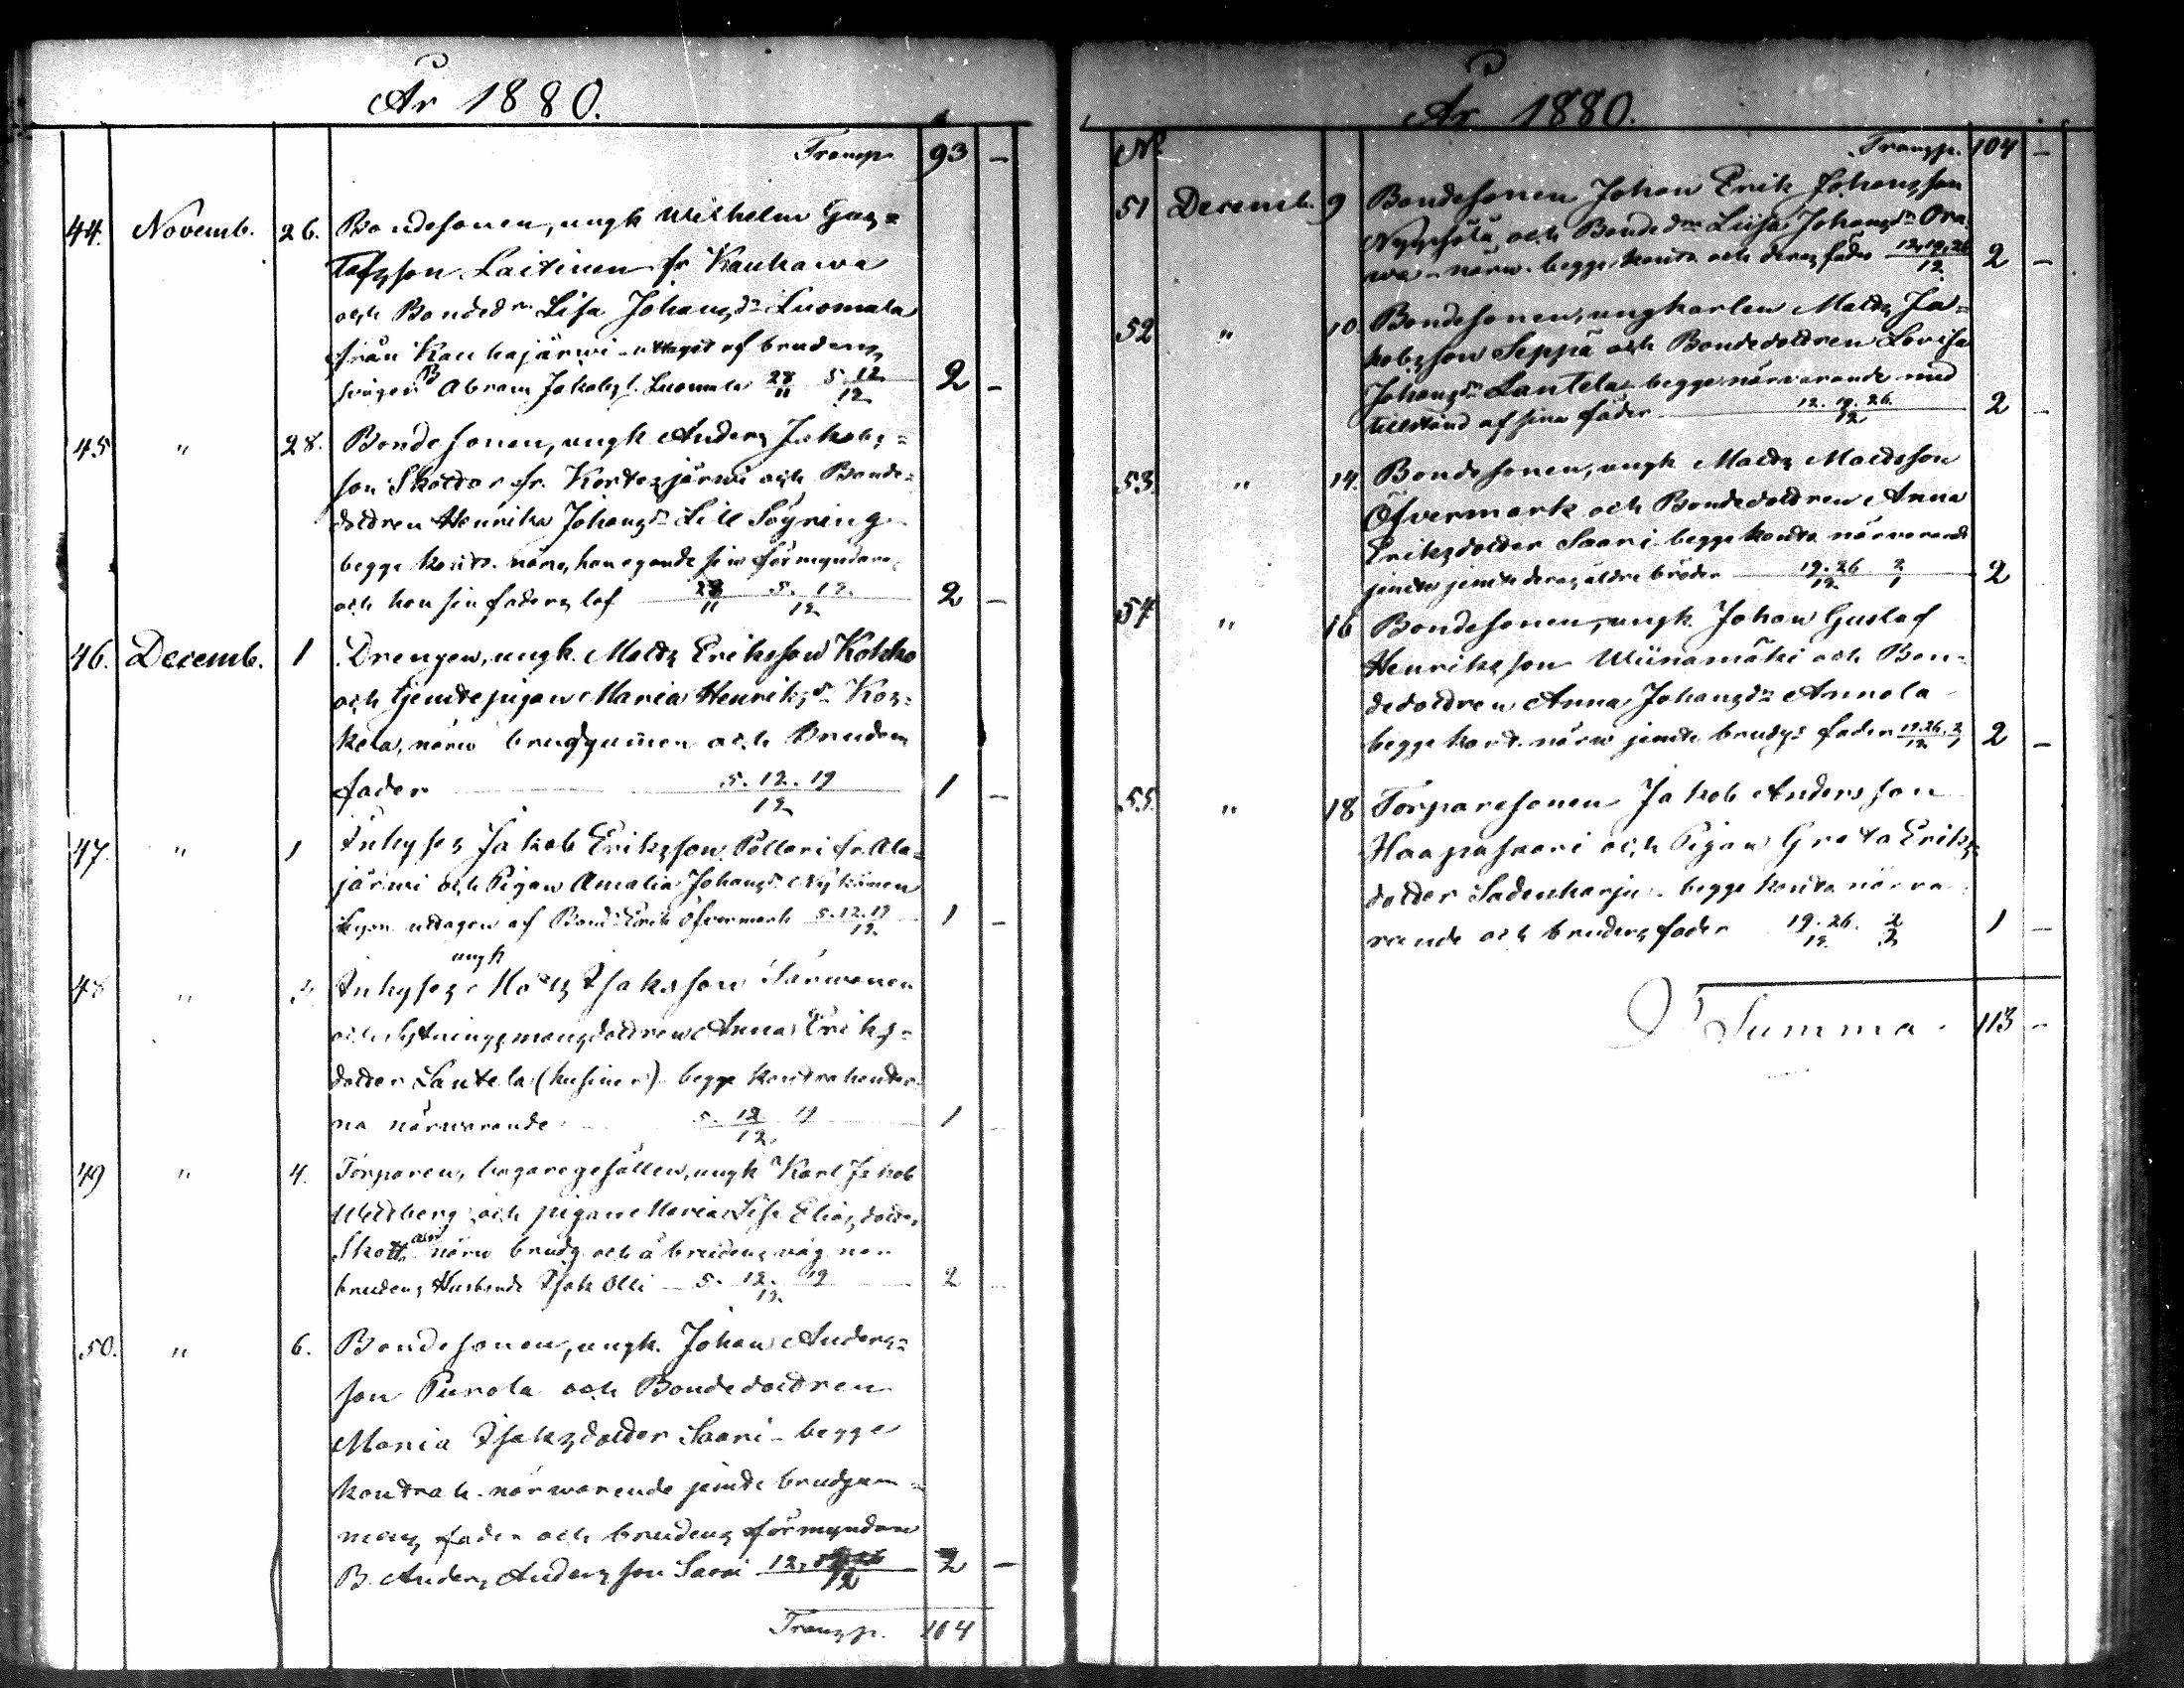 År 1880.
Transp. 93 –
44. Novemb. 26. Bondesonen, ungk Wilhelm Gus=
tafsson Laitinen fr Kauhawa
och Bondedrn Lisa Johansdr Luomala
från Kauhajärwi – uttaget af brudens
svåger B Abram Jakobs. Luomala 28/11 5. 12/12 2 –
45 " 28. Bondesonen, ungk Anders Jakobs=
son Skåttar fr. Kortesjärwi och Bonde=
dottren Henrika Johansdr Lill Soyring
begge kontr. närv, han egande sin förmyndares
och hon sin faders lof 28/11 5. 12./12 2 –
46. Decemb. 1 Drengen, ungk. Matts Eriksson Kokko
och tjenstepigan Maria Henriksdr Kos=
kela, närw brudgummen och Brudens
fader 5. 12. 19/12 1 –
47. " 1 Inhyses Jakob Eriksson Pollari fr. Ala=
järwi och Pigan Amalia Johansdr Nykänen
uttagen af Bond. Erik Öfvermark 5. 12. 19/12 1 –
ungk
48 " 2. Inhyses Matts Isaksson Särwonen
och Sytningsmansdottren Anna Eriks=
dotter Lautela (kusiner) – begge kontrahenter=
na närwarande 5. 12 19/12 1 –
49 " 4. Torparen, ungk Karl Jakob
och pigan Maria Lisa Eliasdotter
Skott närw brudg och å brudens väg nar
brudens Husbonde Isak Olli – 5. 12. 19/12 2 –
50. " 6. Bondesonen, ungk. Johan Anders=
son Purola och Bondedottren
Maria Isaksdotter Saari – begge
kontrah. närwarande jemte brudgum=
mens fader och brudens förmyndare
B. Anders Andersson Saari 12, 19, 26/12 2 –
Transp. 104
År 1880.
No Transp. 104 –
51 Decemb. 9 Bondesonen Johan Erik Johansson
och Bondedrn Liisa Johansdr Ora=
wa – närw. begge kontr. och deras fäder 12, 19, 26/12 2 –
52 " 10 Bondesonen, ungkarlen Matts Ja=
kobsson Seppä och Bondedottren Lovisa
Johansdr Lautela – begge närvarande med
tillstånd af sina fäder 12. 19. 26./12 2 –
53. " 14. Bondesonen, ungk Matts Mattsson
Öfvermark och Bondedottren Anna
Eriksdotter Saari – begge kontr. närvarande
jemte jemte deras äldre bröder 19. 26/12 2/1 2
54 " 16 Bondesonen, ungk. Johan Gustaf
Henriksson Wiinamäki och Bon=
dedottren Anna Johansdr Annola
begge kontr. närw jemte brudgs fader 19. 26./12 2/1 2 –
55. " 18 Torparesonen Jakob Andersson
Haapasaari och Pigan Greta Eriks=
dotter Sadenharju – begge kontr. närva=
rande och brudens fader 19. 26./12 2/2 1 –
Summa – 113 –